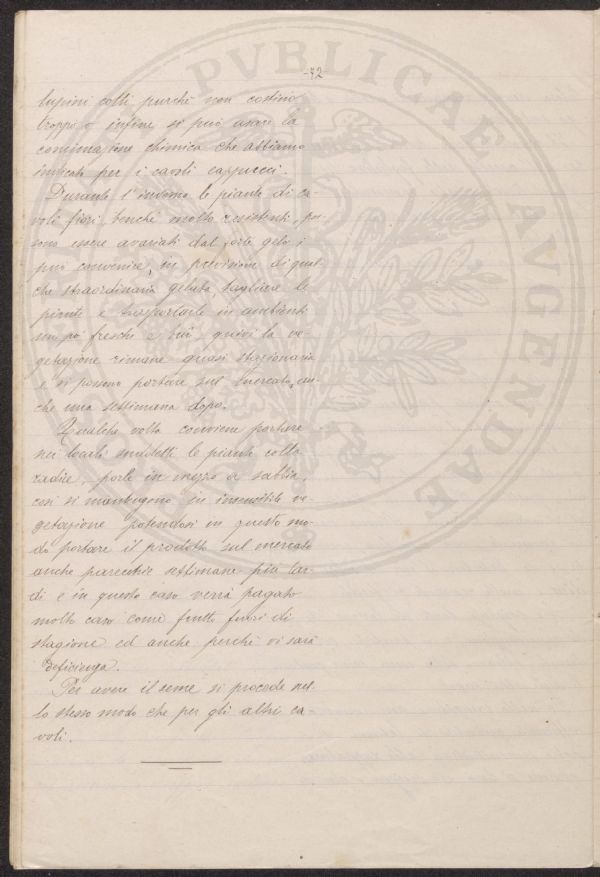 -72-
lupini cotti purché non costino
troppo o infine si può usare la
concimazione chimica che abbiamo
indicato per i cavoli cappucci.
Durante l'inverno le piante di ca-
voli fiori, benché molto resistenti, pos-
sono essere avariati dal forte gelo; i
può convenire, in previsione di qual
che straordinaria gelata, tagliare le
piante e trasportarle in ambienti
un po' freschi e bui; quivi la ve-
getazione rimane quasi stazionaria
e si possono portare sul mercato, an-
che una settimana dopo.
Qualche volta conviene portare
nei locali suddetti le piante colla
radice, porle in mezzo a sabbia,
così si mantengono in insensibile ve-
getazione potendosi in questo mo-
do portare il prodotto sul mercato
anche parecchie settimane più tar-
di e in questo caso verrà pagato
molto caro come frutto fuori di
stagione ed anche perché vi sarà
deficienza.
Per avere il seme si procede nel-
lo stesso modo che per gli altri ca-
voli.
PVBLICAE
AVGENDAE